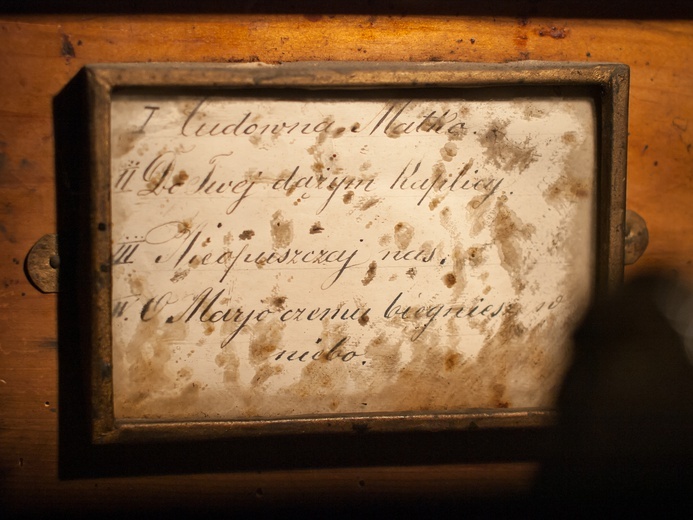 I Cudowna Matko.
II Do Twej dążym Kaplicy.
III Nieopuszczaj nas.
IV. O Marjo czemu biegniesz w
niebo.